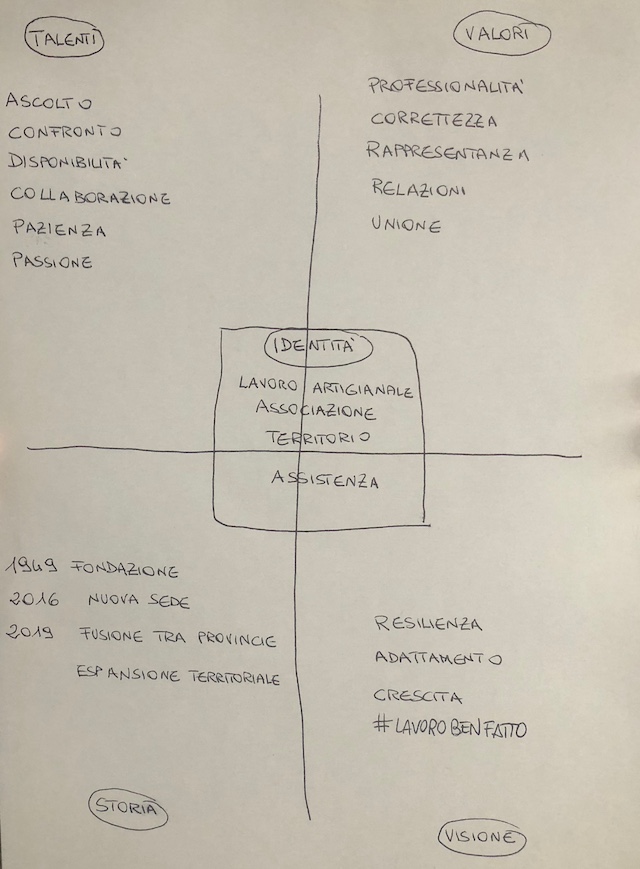 TALENTI
ASCOLTO
CONFRONTO
DISPONIBILITA'
COLLABORAZIONE
PAZIENZA
PASSIONE
VALORI
PROFESSIONALITA'
CORRETTEZZA
RAPPRESENTANZA
RELAZIONI
UNIONE
IDENTITA'
LAVORO ARTIGIANALE
ASSOCIAZIONE
TERRITORIO
ASSISTENZA
1949 FONDAZIONE
2016 NUOVA SEDE
2019 FUSIONE TRA PROVINCIE
ESPANSIONE TERRITORIALE
STORIA
RESILIENZA
ADATTAMENTO
CRESCITA
#LAVOROBENFATTO
VISIONE